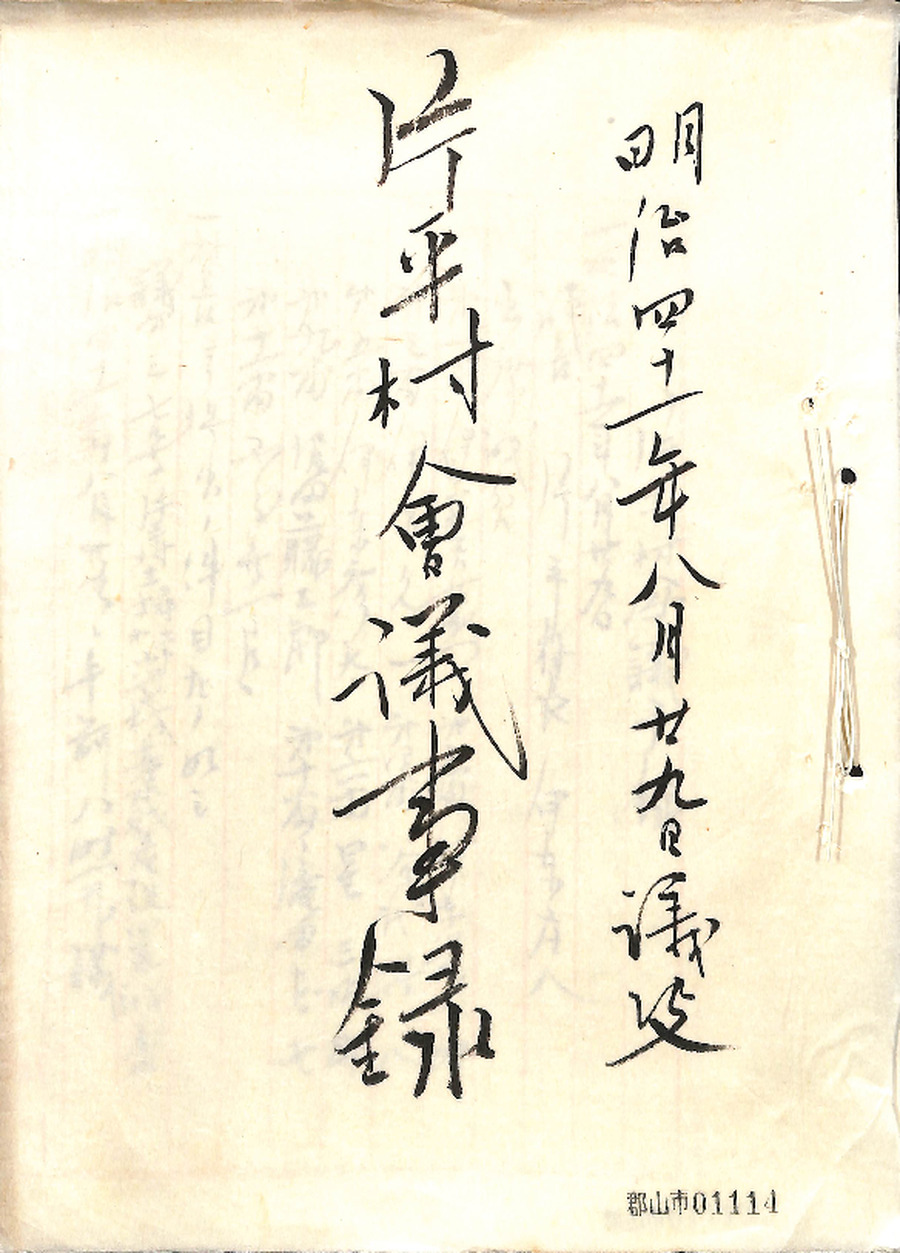 明治四十一年八月廿九日議決
片平村會議事録
郡山市01114